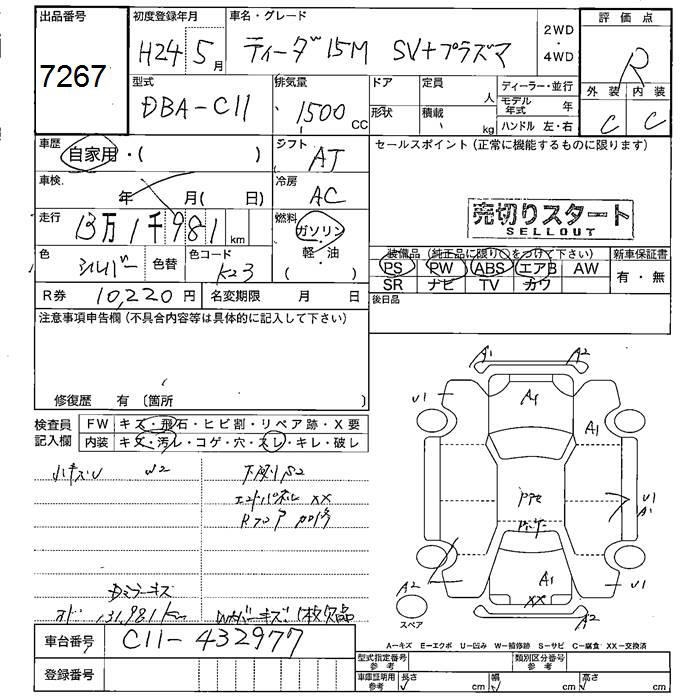 出品番号 初度登録年月 車名・グレード 2WD・4WD 評価点
7267 H24 5月 ティーダ 15M SV+プラズマ R
型式 排気量 ドア 定員 人 ディーラー・並行 外装 内装
DBA-C11 1500CC 形状 積載 kg モデル年式 年 C C
ハンドル 左・右
車歴 自家用・( ) シフト AT セールスポイント(正常に機能するものに限ります)
車検 年 月( 日) 冷房 AC
売切りスタート
SELLOUT
走行 13万1千981km 燃料 ガソリン・軽・油 ( )
色 シルバー 色替 色コード K23
装備品(純正品に限り○をつけて下さい) 新車保証書
PS PW ABS エアB AW 有・無
SR ナビ TV カワ
R券 10,220円 名変期限 月 日 後日品
注意事項申告欄(不具合内容等は具体的に記入して下さい)
修復歴 有 〔箇所
検査員記入欄 FW キズ・飛石・ヒビ割・リペア跡・X要
内装 キズ・汚レ・コゲ・穴・スレ・キレ・破レ
小キズU W2 下廻りS2
エンドパネル XX
Rフロア
Dミラーキズ
オド 131,981km
車台番号 C11-432977
登録番号
A1 A2
U1 A1 A1 U1
PPe
U1 A1
A1 XX
A2 スペア U1 A2
A-キズ E-エクボ U-凹み W-補修跡 S-サビ C-腐食 XX-交換済
型式指定番号 参考 類別区分番号 参考
車庫証明用 参考 長さ cm 幅 cm 高さ cm